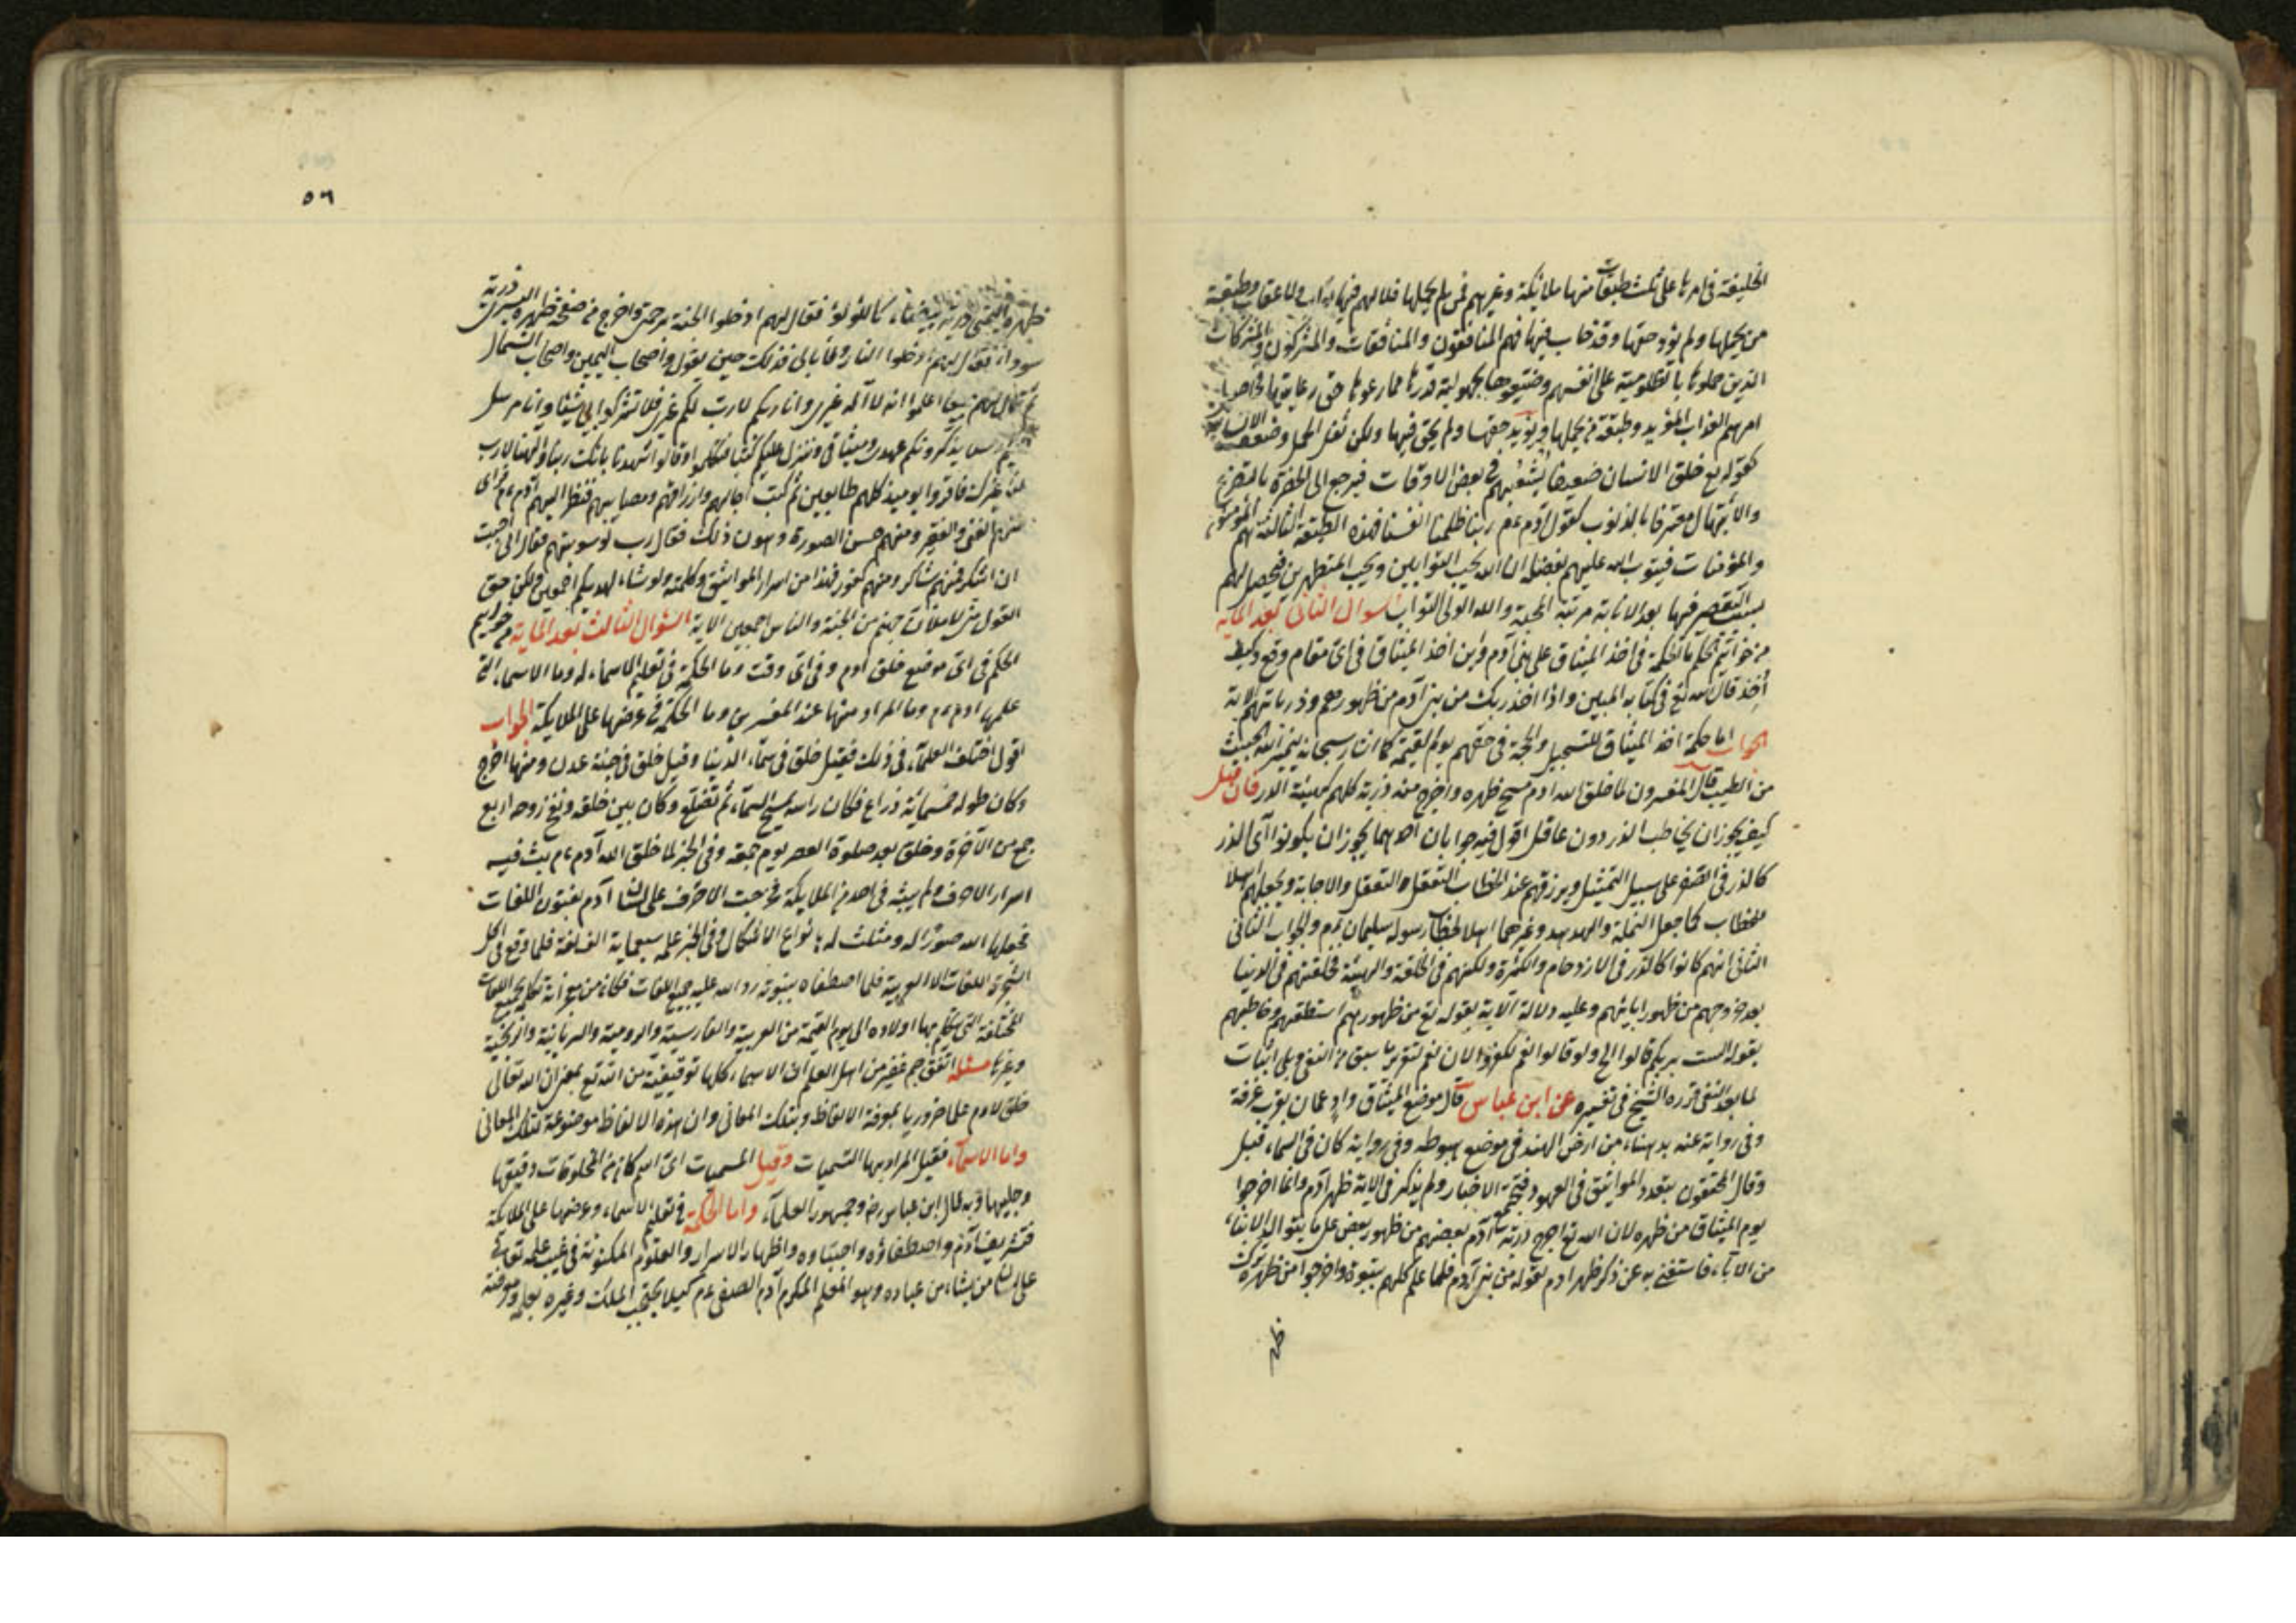 الخليفة فى امرها على ثلث طبقات منها ملائكة وغيرهم فمن لم يحملها فلا لهم فيها ثواب ولا عقاب وطبقة
من يحملها ولم يؤد حقها وقد خاب فيها فهم المنافقون والمنافقات والمشركون والمشركات
الذين حملوها بالظلومية على انفسهم وضيعوها بجهولية قدرها فما رعوها حق رعايتها
امرهم العذاب المؤبد وطبقة من يحملها ويؤيد حقها ولم يخن فيها ولكن ثقل الحمل وضعف الانسانية
كقوله تع خلق الانسان ضعيفا فى بعض الاوقات فيرجع الى الحضرة بالتضرع
والابتهال معترفا بالذنوب كقول آدم عم ربنا ظلمنا انفسنا فهذه الطبقة الثالثة هم المؤمنون
والمؤمنات فيتوب الله عليهم بفضله ان الله يحب التوابين ويحب المتطهرين فيحصل لهم
بسبب التقصير فيها بعد الانابة مرتبة المحبة والله الولى التواب سؤال الثانى بعد المايه
من خواتيم الحكم ما الحكمة فى اخذ الميثاق على بنى آدم واين اخذ الميثاق فى اى مقام وقع وكيف
أخذ قال الله تع فى كتابه المبين واذا اخذ ربك من بنى آدم من ظهورهم وذرياتهم الاية
الجواب اما حكمة اخذ الميثاق للتسجيل والحجة فى حقهم يوم القيمة كما اشار سبحانه ليميز الله الخبيث
من الطيب قال المفسرون لما خلق الله ادم مسح ظهره واخرج منه ذرية كلهم كهيئة الذر فان قيل
كيف يجوز ان يخاطب الذر دون عاقل اقول فيه جوابان احدهما يجوز ان يكونوا اى الذر
كالذر فى الصغر على سبيل التمثيل ويرزقهم عند الخطاب التعقل والتعقل والاجابة ويجعلهم اهلا
للخطاب كما جعل النملة والهدهد وغيرهما اهلا لخطاب رسوله سليمان عم والجواب الثانى
الثانى انهم كانوا كالذر فى الازدحام والكثرة ولكنهم فى الخلقة والهيئة كخلقتهم فى الدنيا
بعد خروجهم من ظهور ابائهم وعليه دلالة الآية بقوله تع من ظهورهم استنطقهم وخاطبهم
بقوله الست بربكم قالوا بلى ولو قالوا نعم لكفروا لان نعم لتقرير ما سبق من النفى وبلى اثبات
لما بعد النفى قرره الشيخ فى تفسيره عن ابن عباس قال موضع الميثاق وادى عمان بقرب عرفة
وفى رواية عنه بدهناء من ارض الهند فى موضع هبوطه وفى رواية كان فى السماء قيل
وقال المحققون بتعدد المواثيق فى العهود فتجتمع الاخبار ولم يذكر فى الاية ظهر آدم وانما اخرجوا
يوم الميثاق من ظهره لان الله تع اخرج ذرية آدم بعضهم من ظهور بعض على ما يتوالد الابناء
من الآباء فاستغنى به عن ذكر ظهر ادم بقوله من بنى آدم فلما علم كلهم بنبوة واخرجوا من ظهره
ظهر
٥٦
ظهره اليمنى ذرية بيضاء كاللؤلؤ فقال لهم ادخلوا الجنة برحمتى واخرج من صفحة ظهره اليسرى ذرية
سوداء فقال لهم ادخلوا النار ولا ابالى فذلك حين يقول واصحاب اليمين واصحاب الشمال
ثم قال لهم جميعا اعلموا انه لا اله غيرى وانا ربكم لا رب لكم غيرى فلا تشركوا بى شيئا وانا مرسل
يذكرونكم عهدى وميثاقى ومنزل عليكم كتبا فتكلموا وقالوا شهدنا بانك ربنا والهنا لا رب
لنا غيرك فاقروا يوميذ كلهم طايعين ثم كتب اجالهم وارزاقهم ومصايبهم فنظر اليهم آدم عم فراى
منهم الغنى والفقير ومنهم حسن الصورة ودون ذلك فقال رب لو سويتهم فقال انى احببت
ان اشكر فمنهم شاكر ومنهم كفور فهذا من اسرار المواثيق وكلمته ولو شاء لهديكم اجمعين ولكن حق
القول منى لاملان جهنم من الجنة والناس اجمعين الآية السؤال الثالث بعد الماية من خواتيم
الحكم فى اى موضع خلق ادم وفى اى وقت وما الحكمة فى تعليم الاسماء له وما الاسماء التى
علمها ادم عم وما المراد منها عند المفسرين وما الحكمة فى عرضها على الملايكة الجواب
اقول اختلف العلماء فى ذلك فقيل خلق فى سماء الدنيا وقيل خلق فى جنة عدن ومنها اخرج
وكان طوله خمسمائة ذراع فكان راسه يمسح السماء ثم تصلع وكان بين خلقه ونفخ روحه اربع
جمع من الآخرة وخلق بعد صلوة العصر يوم جمعة وفى الخبر لما خلق الله آدم عم بث فيه
اسرار الاحرف ولم يبثه فى احد من الملايكة فخرجت الاحرف على لسان آدم بفنون اللغات
فجعلها الله صورًا له ومثلث له بانواع الاشكال وفى الخبر علمه سبعماية الف لغة فلما وقع فى اكل
الشجرة اللغات الا العربية فلما اصطفاه بنبوته رد الله عليه جميع اللغات فكان من معجزاته تكلمه بجميع اللغات
المختلفة التى يتكلم بها اولاده الى يوم القيمة من العربية والفارسية والرومية والسريانية والزنجية
وغيرها مسئله اتفق جم غفير من اهل العلم ان الاسماء كلها توقيفية من الله تع بمعنى ان الله تعالى
خلق لادم علما ضروريا بمعرفة الالفاظ وبتلك المعانى وان هذه الالفاظ موضوعة لتلك المعانى
واما الاسماء فقيل المراد بها التسميات وقيل المسميات اى اسم كان من المخلوقات دقيقها
وجليلها وبه قال ابن عباس رض وجمهور العلماء واما الحكمة فى تعليم الاسماء وعرضها على الملايكة
فتشريف آدم واصطفاؤه واجتباوه واظهار الاسرار والعلوم المكنونة فى غيب علمه تعالى
على لسان من يشاء من عباده وهو المعلم المكرم آدم الصفى عم كيلا يحتجب الملك وغيره بعلمه ومعرفته